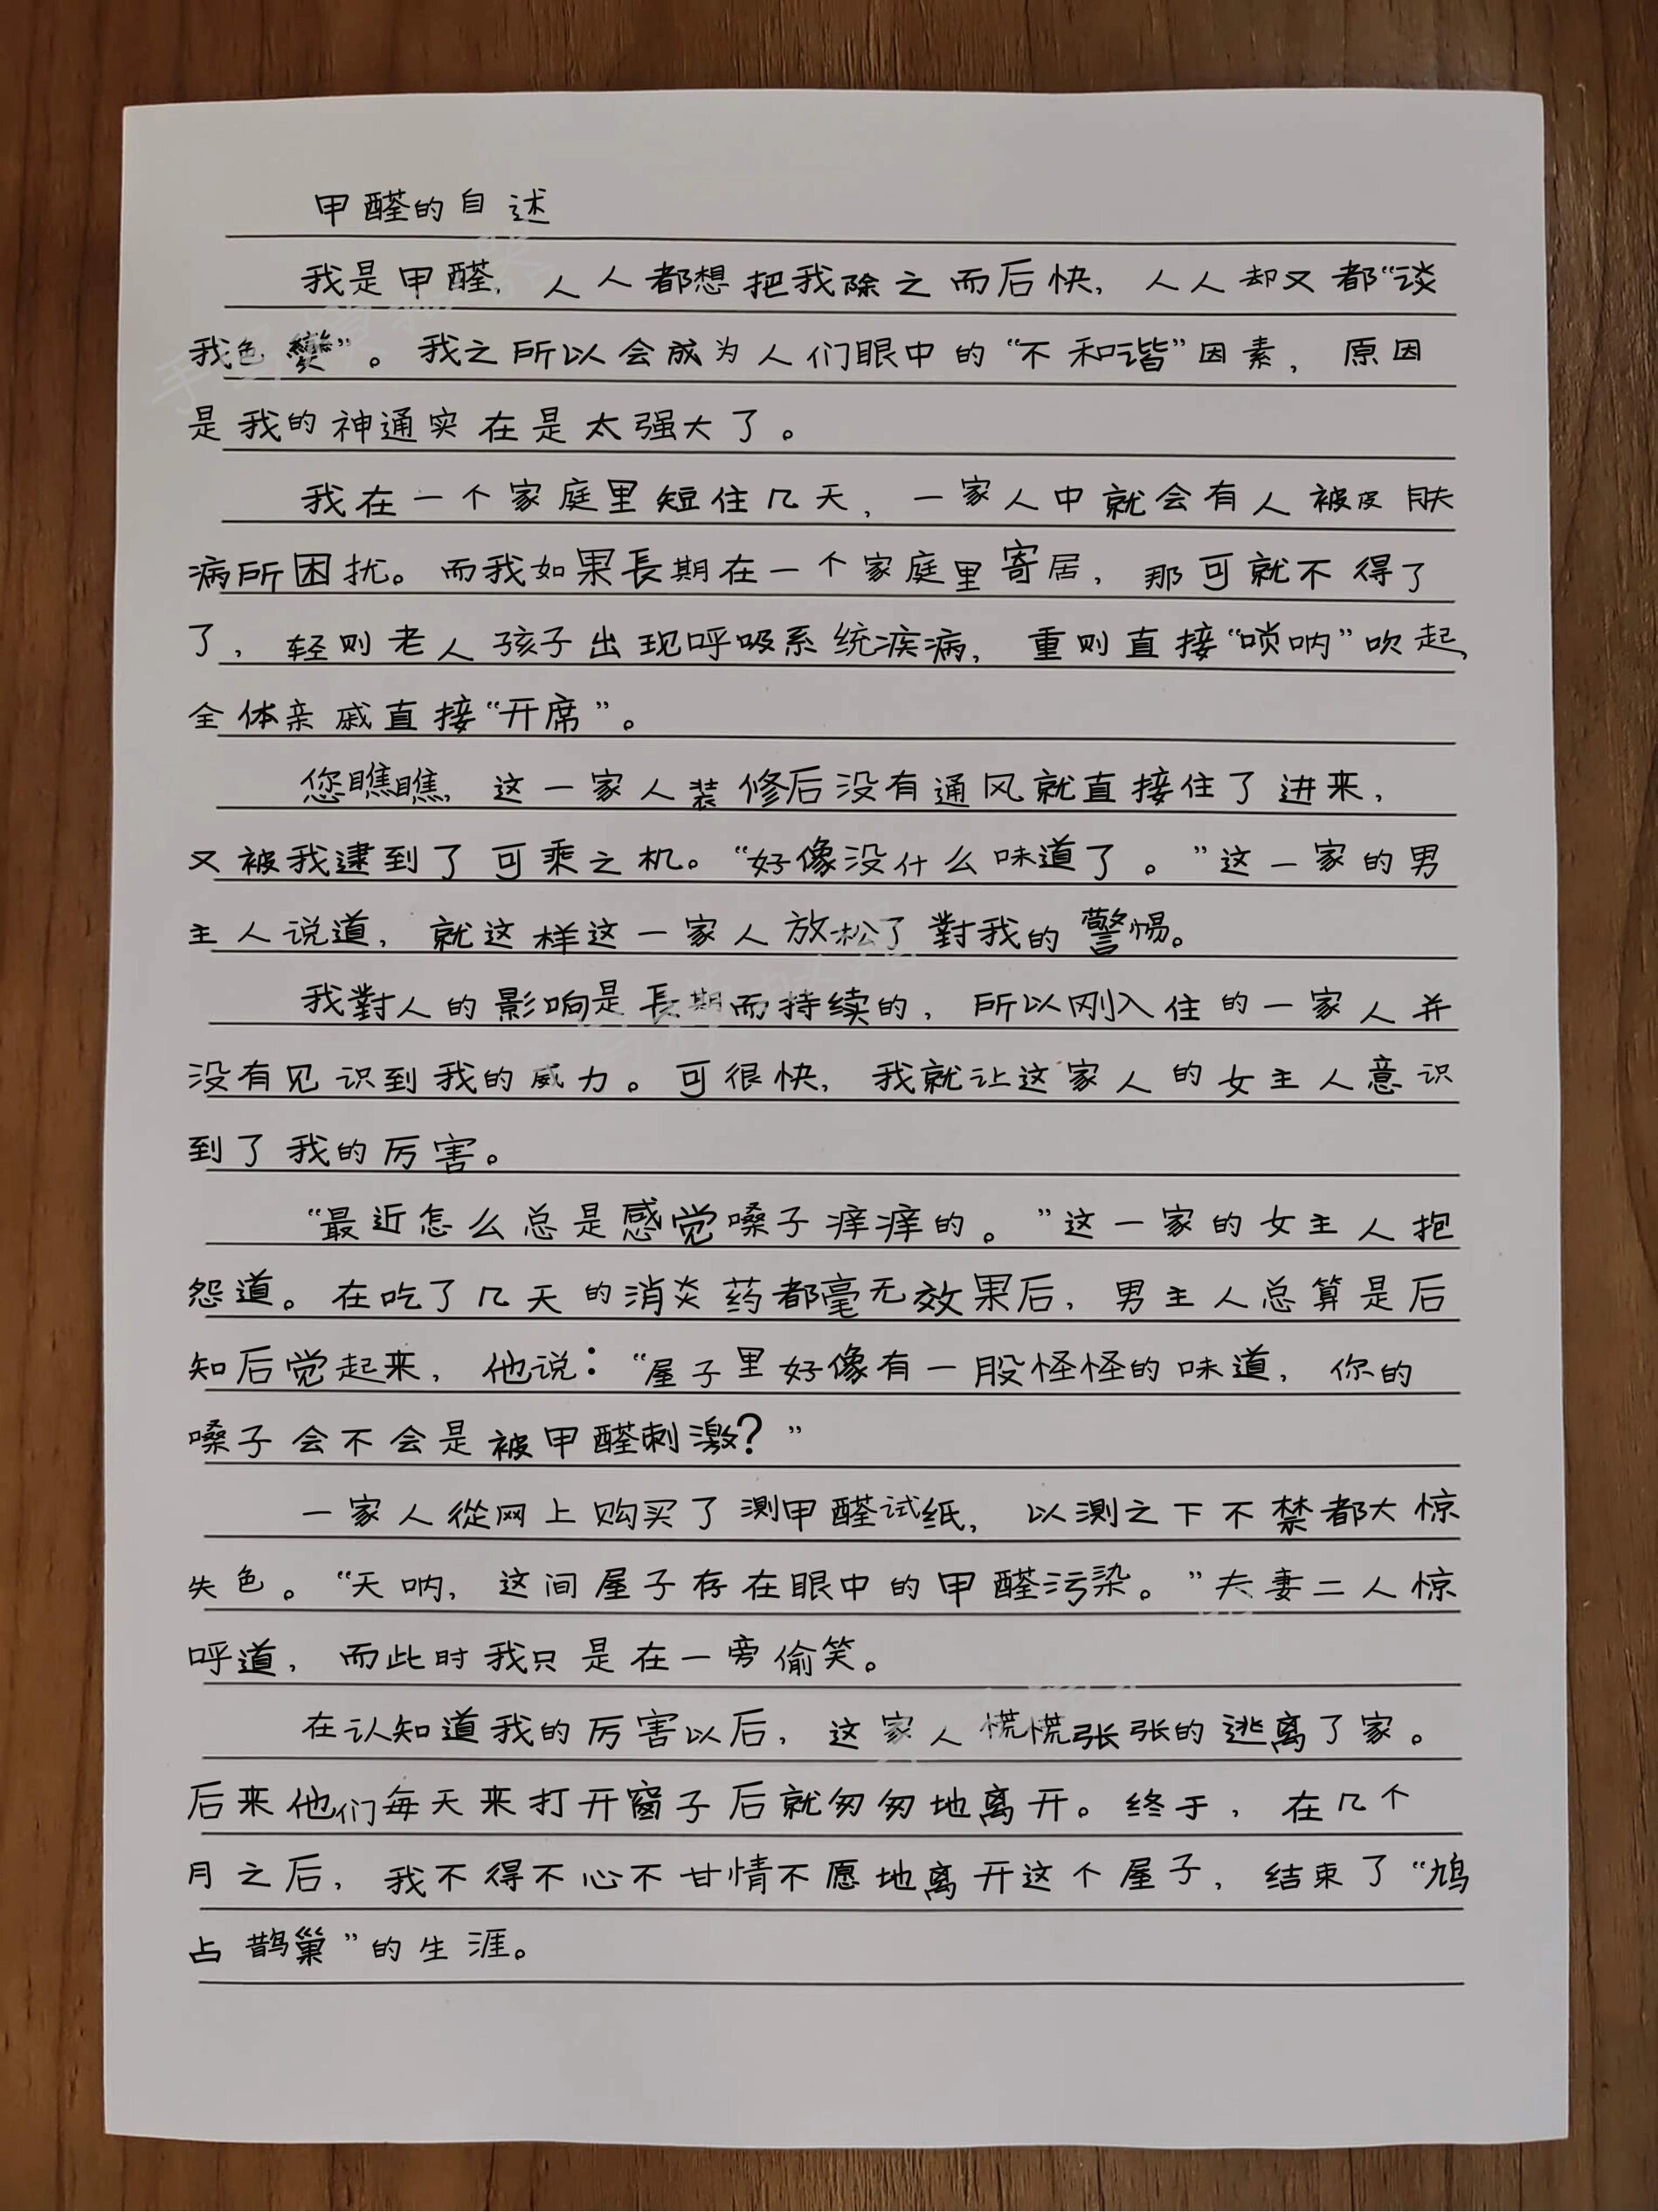 甲醛的自述
我是甲醛，人人都想把我除之而后快，人人却又都“谈
我色變”。我之所以会成为人们眼中的“不和谐”因素，原因
是我的神通实在是太强大了。
我在一个家庭里短住几天，一家人中就会有人被皮肤
病所困扰。而我如果長期在一个家庭里寄居，那可就不得了
了，轻则老人孩子出现呼吸系统疾病，重则直接“唢呐”吹起，
全体亲戚直接“开席”。
您瞧瞧，这一家人装修后没有通风就直接住了进来，
又被我逮到了可乘之机。“好像没什么味道了。”这一家的男
主人说道，就这样这一家人放松了對我的警惕。
我對人的影响是長期而持续的，所以刚入住的一家人并
没有见识到我的威力。可很快，我就让这家人的女主人意识
到了我的厉害。
“最近怎么总是感觉嗓子痒痒的。”这一家的女主人抱
怨道。在吃了几天的消炎药都毫无效果后，男主人总算是后
知后觉起来，他说：“屋子里好像有一股怪怪的味道，你的
嗓子会不会是被甲醛刺激？”
一家人從网上购买了测甲醛试纸，以测之下不禁都大惊
失色。“天呐，这间屋子存在眼中的甲醛污染。”夫妻二人惊
呼道，而此时我只是在一旁偷笑。
在认知道我的厉害以后，这家人慌慌张张的逃离了家。
后来他们每天来打开窗子后就匆匆地离开。终于，在几个
月之后，我不得不心不甘情不愿地离开这个屋子，结束了“鸠
占鹊巢”的生涯。